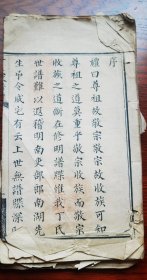 序
禮曰尊祖故敬宗敬宗故收族可知
尊祖之道莫重乎敬宗收族而敬宗
收族之道斷在修明譜牒惟我丁氏
世譜難以遐稽明南吏部郎南湖先
生帝令咸宅有云上世無譜牒深